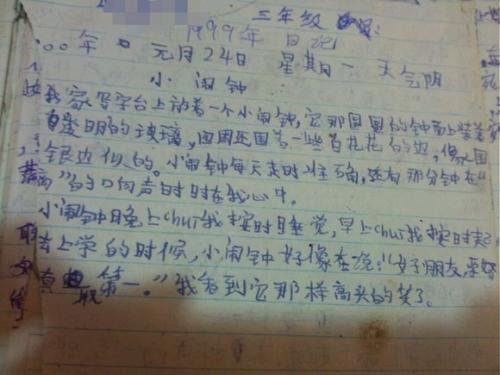 三年级
1999年 日记
年 元月24日 星期一 天气阴
小闹钟
我家写字台上放着一个小闹钟,它那圆圆的钟面上装着
透明的玻璃,四周还围着一些白花花的边,像
银边似的。小闹钟每天走时准确,还有那分钟在"
的响声时时在我心中。
小闹钟晚上chui我按时睡觉,早上chui我按时起
去上学的时候,小闹钟好像在说:"好朋友,要
取第一。"我看到它那样高兴的笑了。